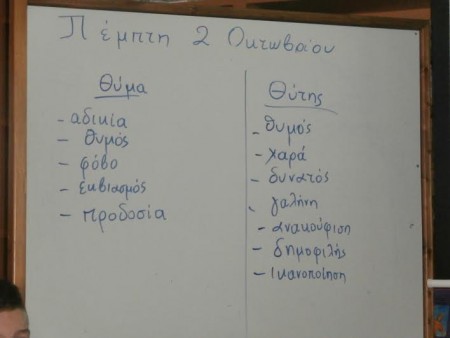 Πέμπτη 2 Οκτωβρίου
Θύμα
- αδικία
- θυμός
- φόβο
- εκβιασμός
- προδοσία
Θύτης
- θυμός
- χαρά
- δυνατός
- γαλήνη
- ανακούφιση
- δημοφιλής
- ικανοποίηση